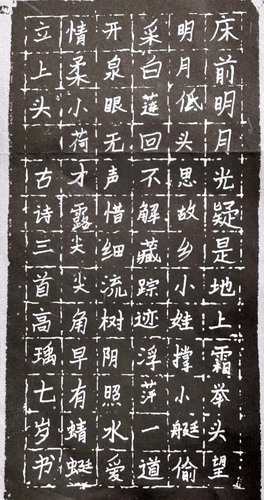 床前明月光疑是地上霜举头望
明月低头思故乡小娃撑小艇偷
采白莲回不解藏踪迹浮萍一道
开泉眼无声惜细流树阴照水爱
情柔小荷才露尖尖角早有蜻蜓
立上头古诗三首高瑀七岁书